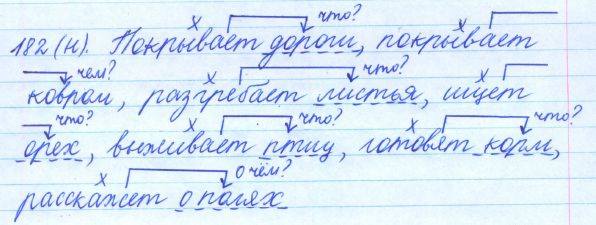 что?
182 (н). Покрывает дороги, покрывает
чем? что?
ковром, разгребает листья, ищет
что? что? что?
орех, выживает птиц, готовят корм,
о чём?
расскажет о полях